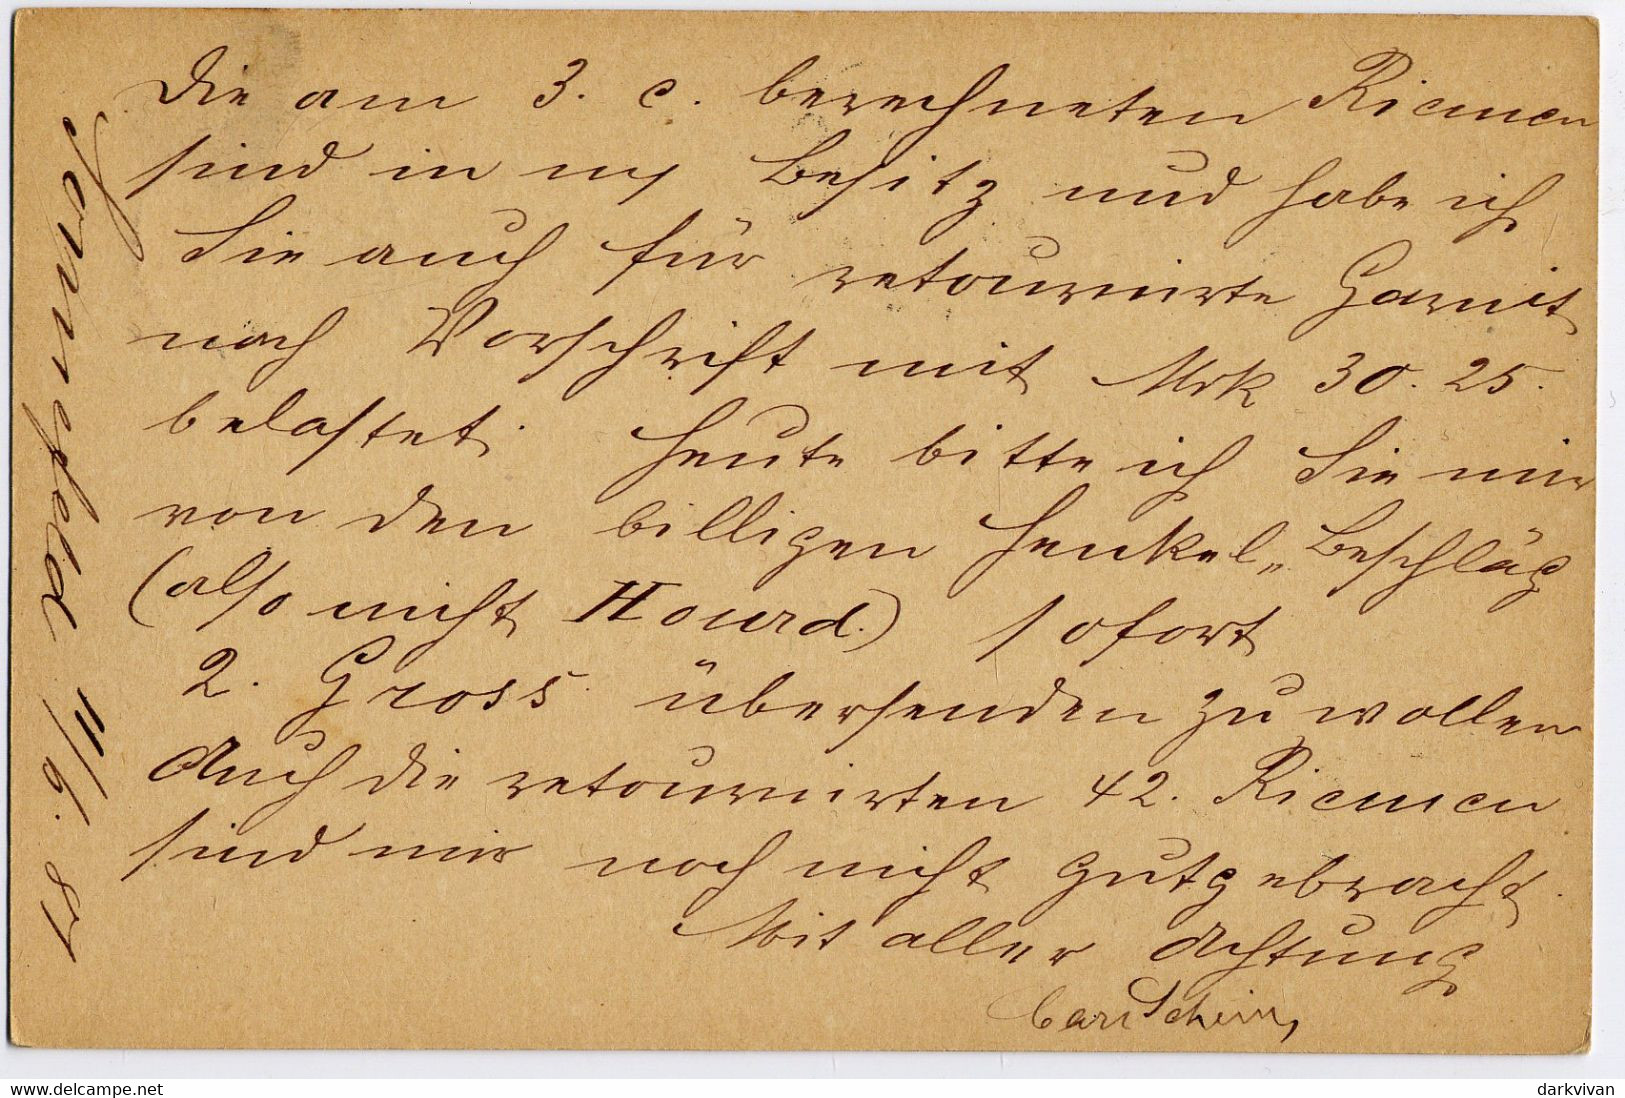 Die am 3. c. berechneten Riemen
sind in m/ Besitz und habe ich
Sie auch für retournirte Garnit
nach Vorschrift mit Mrk 30.25.
belastet. Heute bitte ich Sie mir
von den billigen Henkel-Beschläg
(also nicht) sofort
2. Gross übersenden zu wollen
Auch die retournirten 42. Riemen
sind mir noch nicht gutgebracht.
Mit aller Achtung
Carl
Sonnefeld 11/6. 87
darkvivan
www.delcampe.net